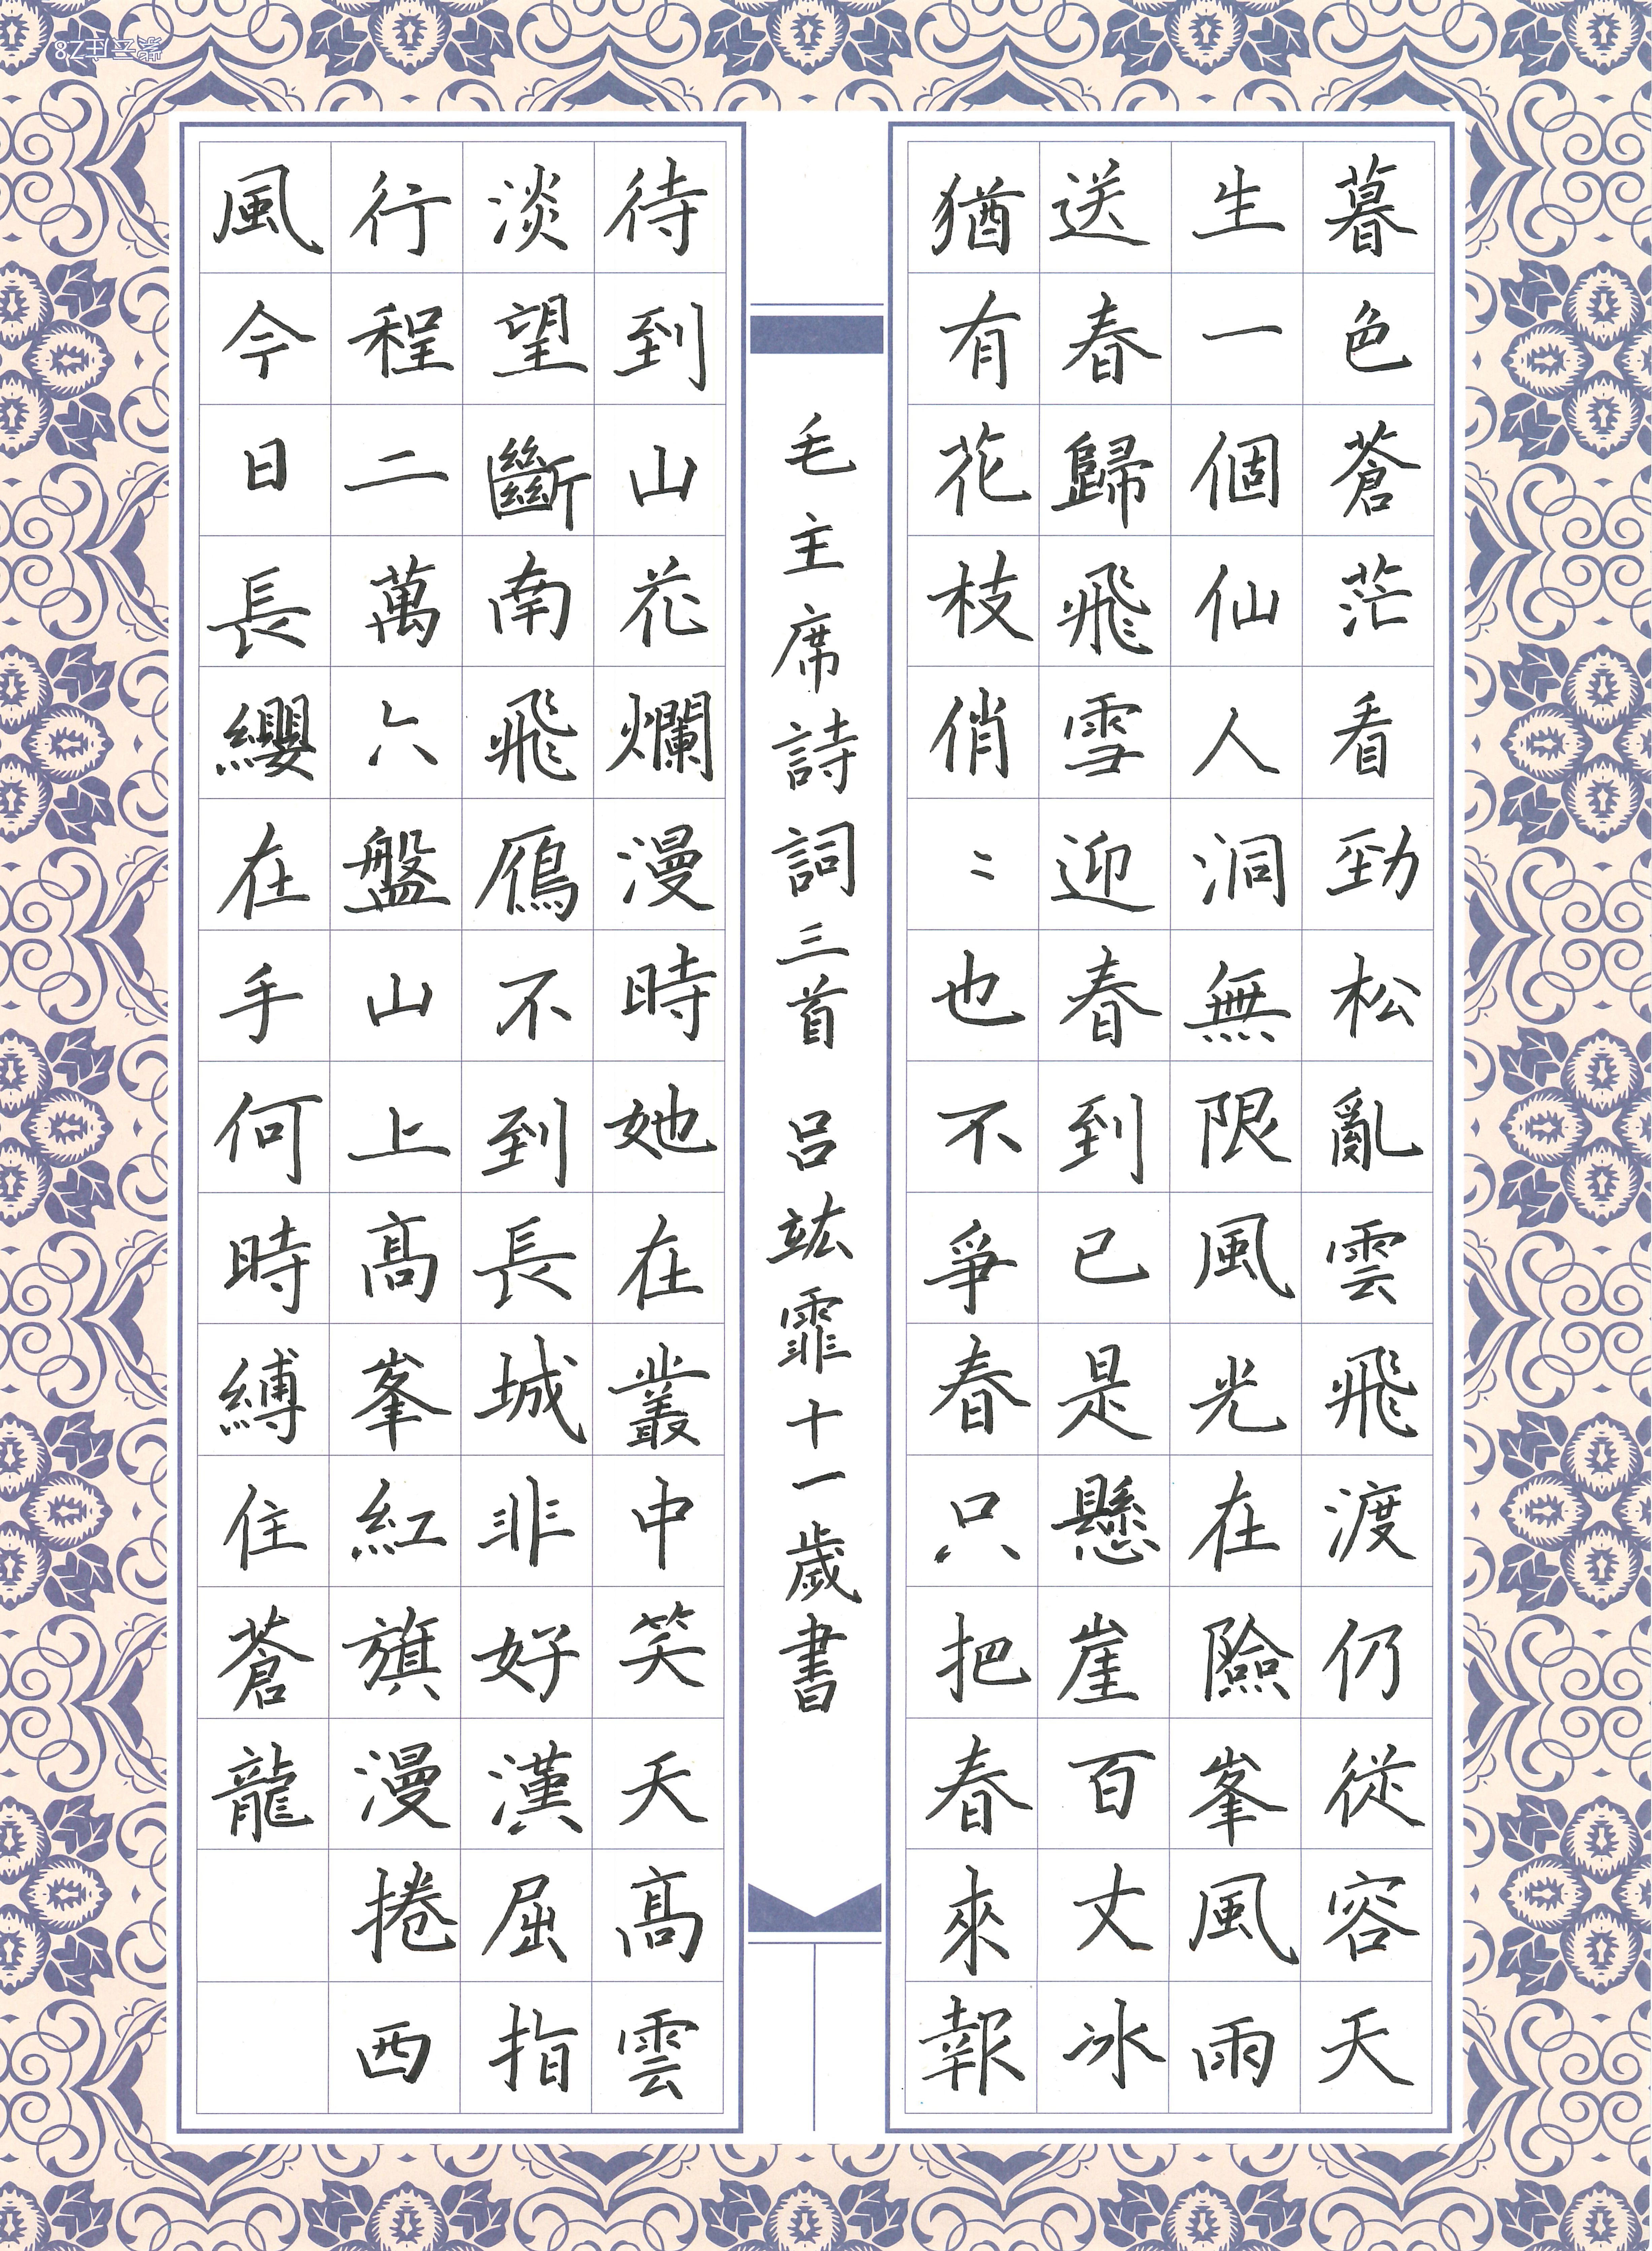 暮色蒼茫看勁松亂雲飛渡仍從容天
生一個仙人洞無限風光在險峯風雨
送春歸飛雪迎春到已是懸崖百丈冰
猶有花枝俏〻也不爭春只把春來報
毛主席詩詞三首 呂竑霏十一歲書
待到山花爛漫時她在叢中笑天高雲
淡望斷南飛鴈不到長城非好漢屈指
行程二萬六盤山上高峯紅旗漫捲西
風今日長纓在手何時縛住蒼龍
紫云庄Z8